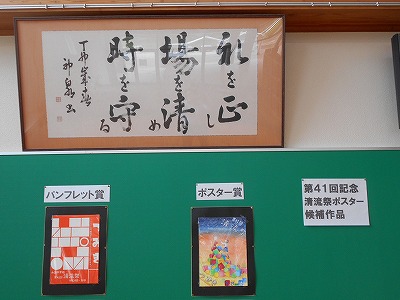 礼を正し
場を清め
時を守る
パンフレット賞
ポスター賞
第41回記念
清流祭ポスター
候補作品